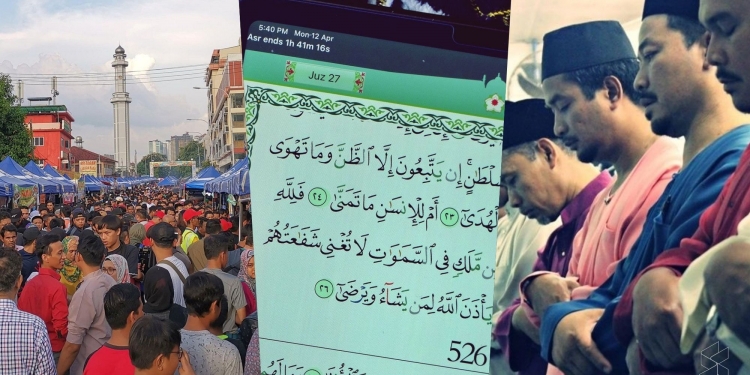 5:40 PM Mon 12 Apr
Asr ends 1h 41m 16s
Juz 27
سُلْطَٰنٍۚ إِن يَتَّبِعُونَ إِلَّا ٱلظَّنَّ وَمَا تَهْوَى
ٱلْهُدَىٰٓ ٢٣ أَمْ لِلْإِنسَٰنِ مَا تَمَنَّىٰ ٢٤ فَلِلَّهِ
مِّن مَّلَكٍ فِى ٱلسَّمَٰوَٰتِ لَا تُغْنِى شَفَٰعَتُهُمْ
يَأْذَنَ ٱللَّهُ لِمَن يَشَآءُ وَيَرْضَىٰٓ ٢٦
526